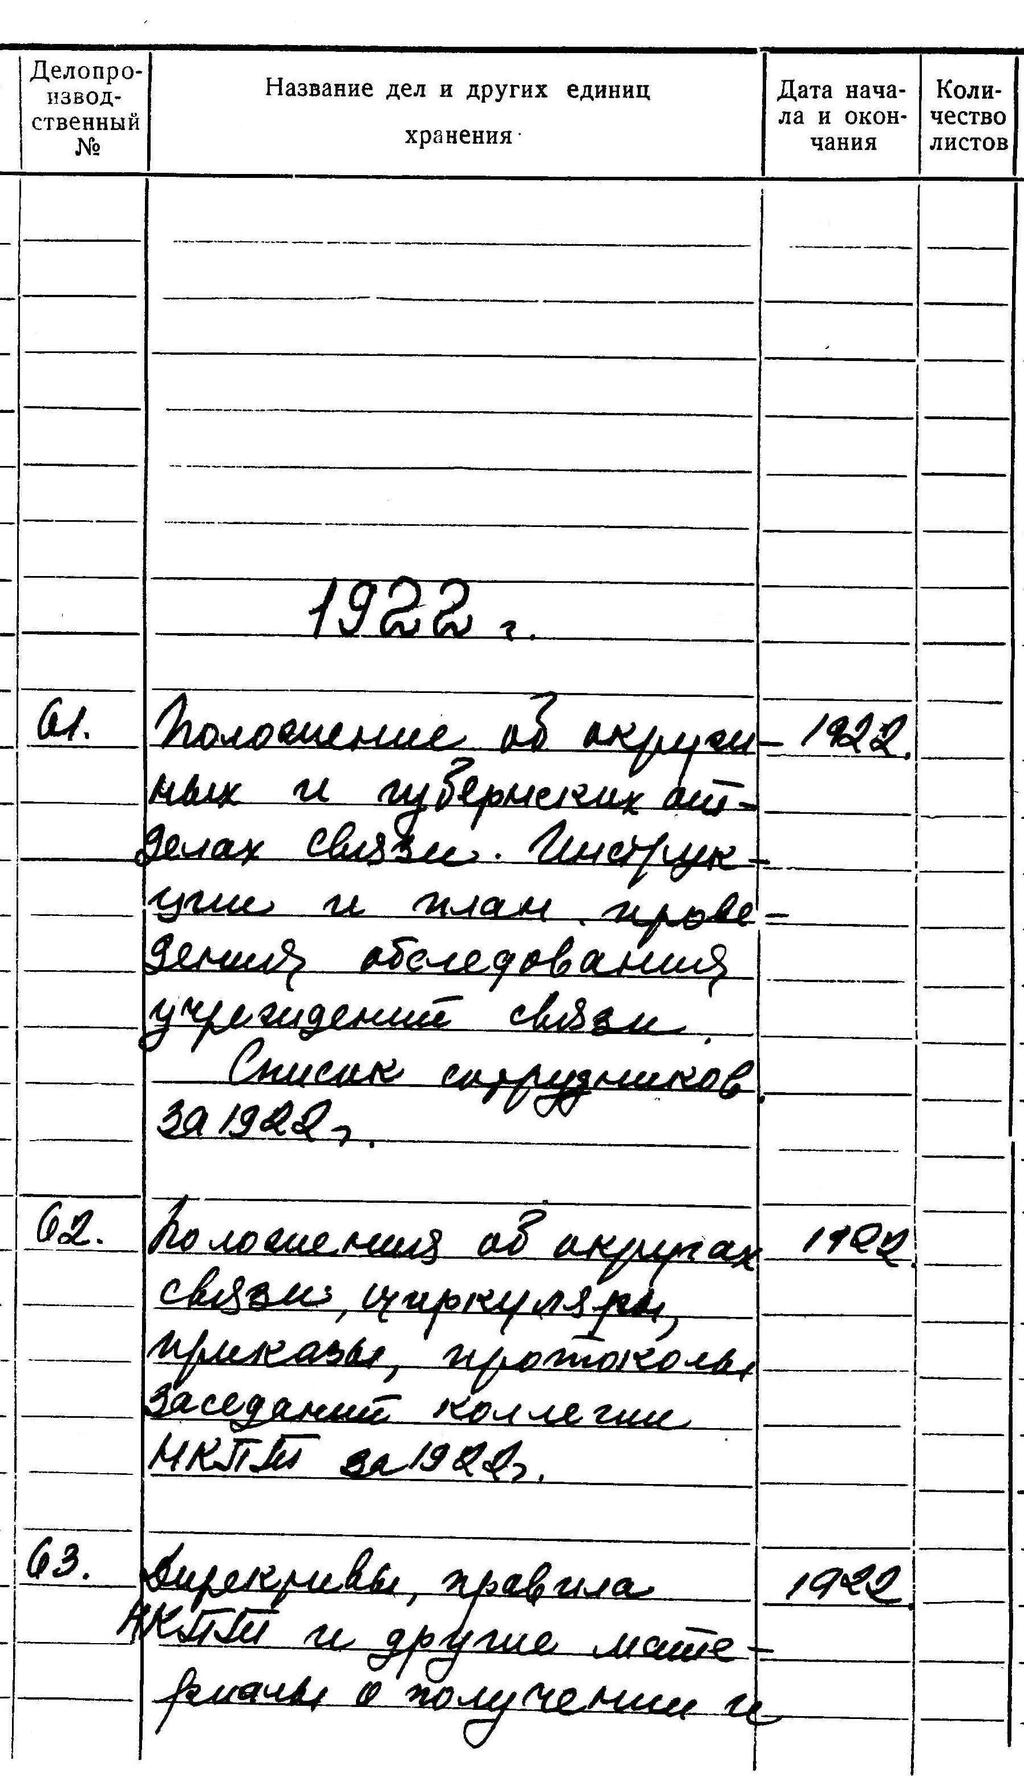 Делопро-
извод-
ственный
№
Название дел и других единиц
хранения
Дата нача-
ла и окон-
чания
Коли-
чество
листов
1922 г.
61. Положение об окруж- 1922.
ных и губернских от-
делах связи. Инструк-
ции и план прове-
дения обследования
учреждений связи.
Список сотрудников
за 1922 г.
62. Положения об округах 1922.
связи, циркуляры,
приказы, протоколы
заседаний коллегии
НКПТ за 1922 г.
63. Директивы, правила 1922.
НКПТ и другие мате-
риалы о получении и